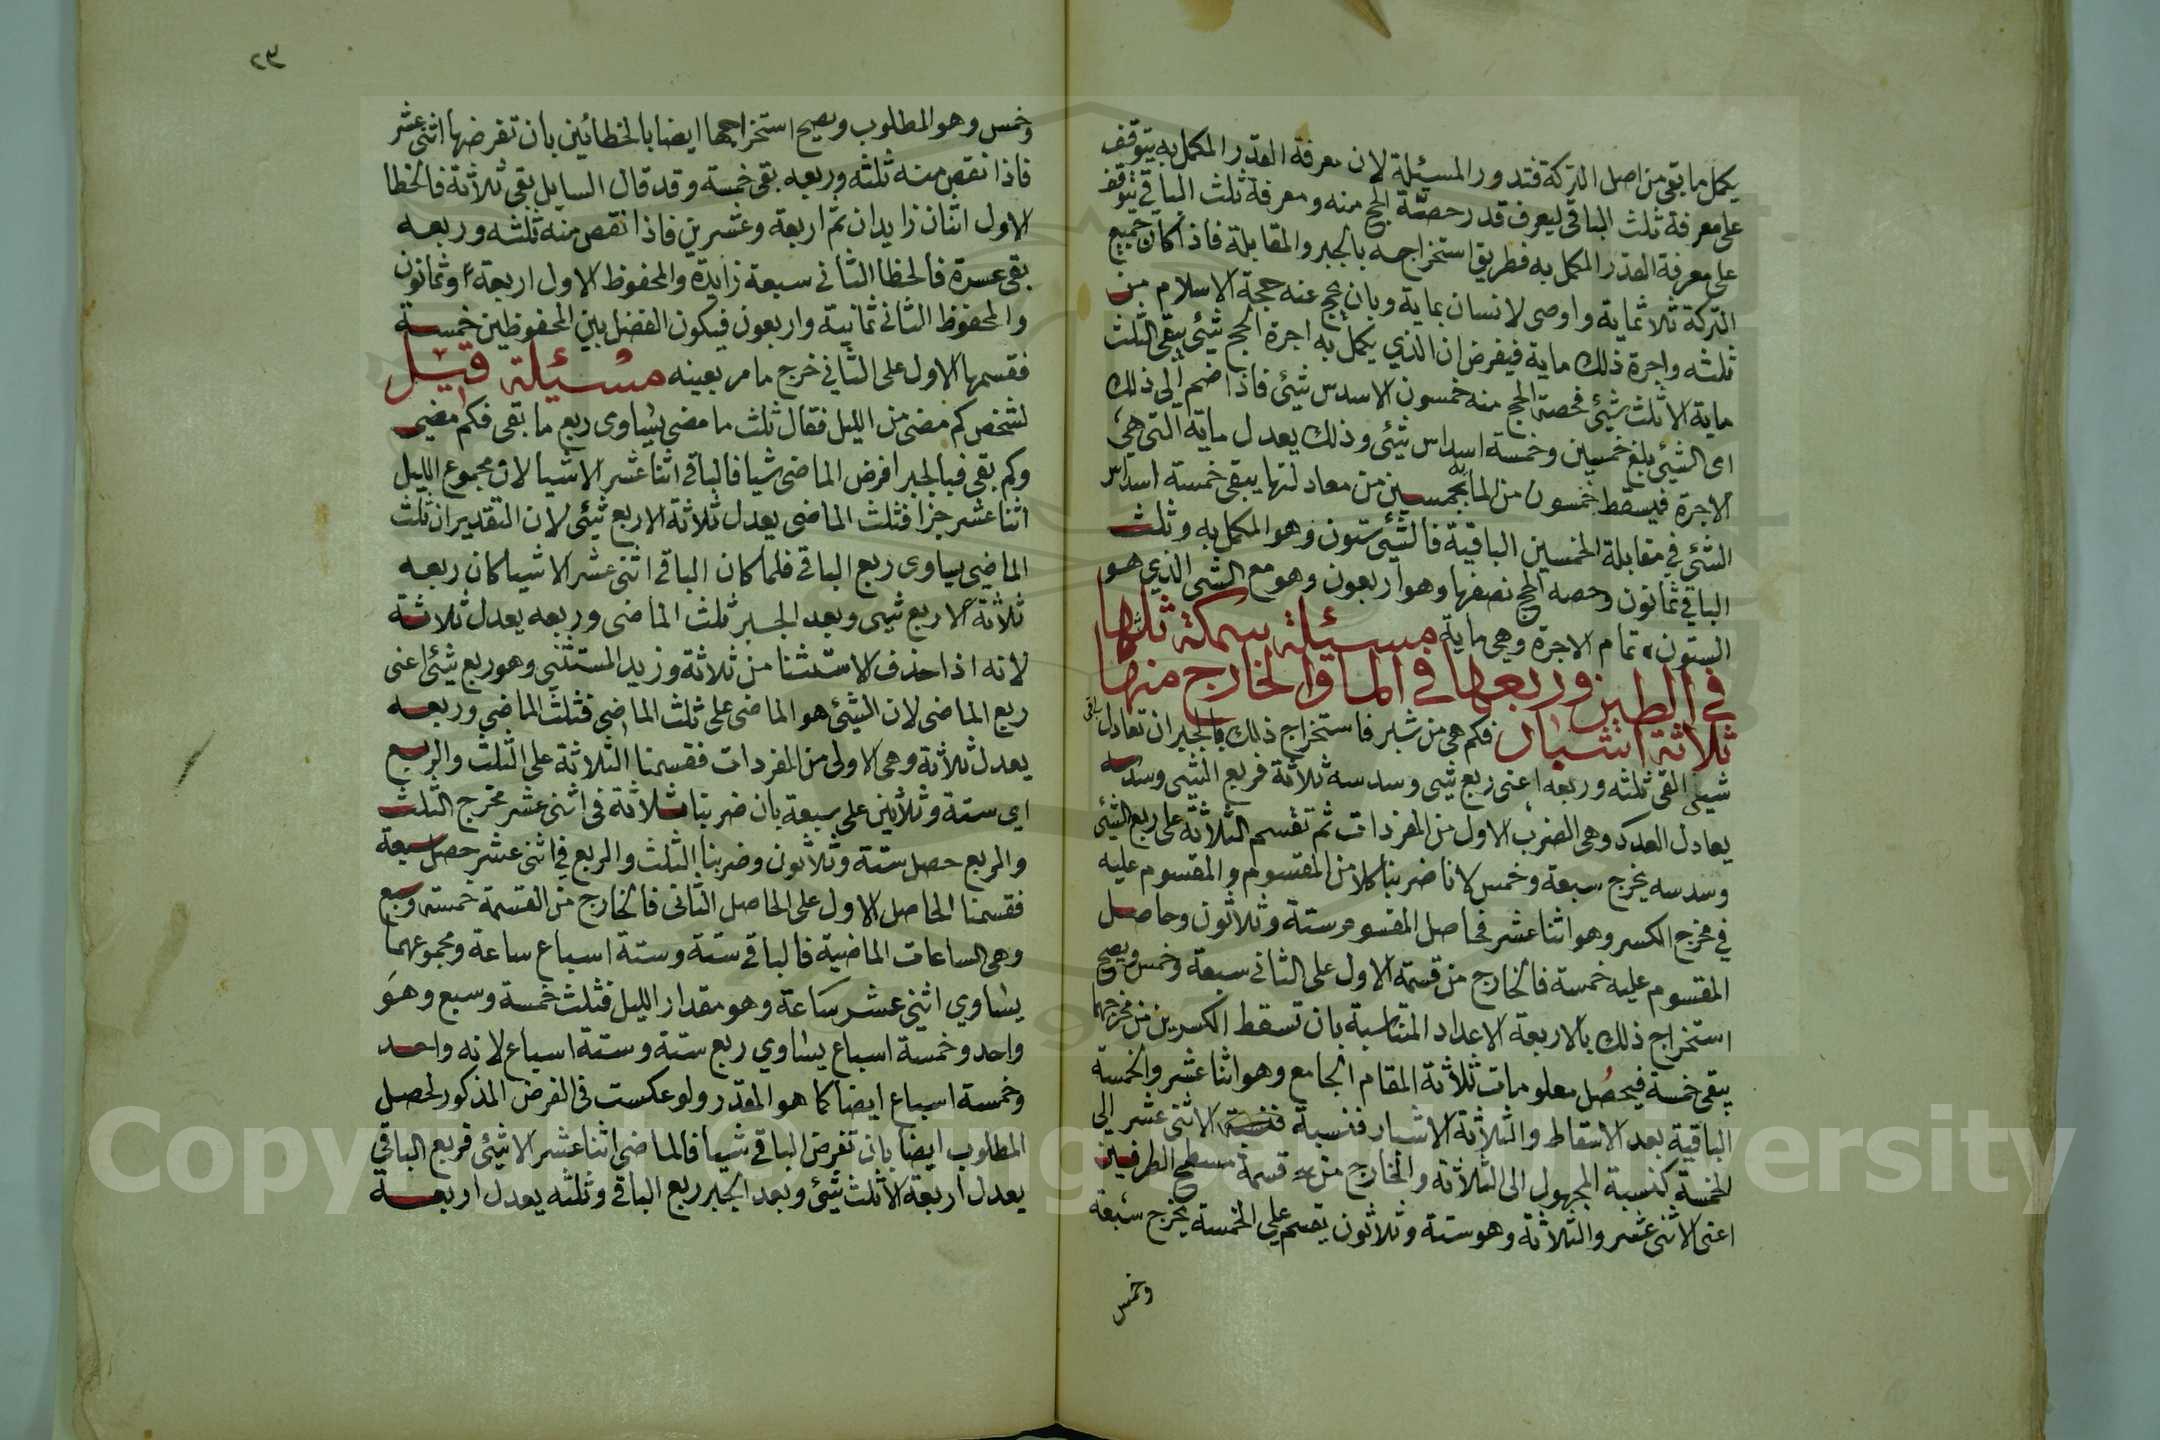 يكمل ما بقى من اصل التركة فتدور المسئلة لان معرفة القدر المكمل به يتوقف
على معرفة ثلث الباقي ليعرف قدر حصة الحج منه ومعرفة ثلث الباقي تتوقف
على معرفة القدر المكمل به فطريق استخراجه بالجبر والمقابلة فاذا كان جميع
التركة ثلاثماية واوصى لانسان بماية وبان يحج عنه حجة الاسلام من
ثلثه واجرة ذلك ماية فيفرض ان الذي يكمل به اجرة الحج شيئ يبقى الثلث
ماية الا ثلث شيئ فحصة الحج منه خمسون الا سدس شيئ فاذا ضم الى ذلك
اى الشيئ بلغ خمسين وخمسة اسداس شيئ وذلك يعدل ماية التى هي
الاجرة فيسقط خمسون من الماية بخمسين من معادلتها يبقى خمسة اسداس
الشئ في مقابلة الخمسين الباقية فالشيئ ستون وهو المكمل به وثلث
الباقي ثمانون وحصه الحج نصفها وهو اربعون وهو مع الشئ الذي هو
الستون تمام الاجرة وهي ماية مسئيلة سمكة ثلثها
في الطين وربعها في الماء والخارج منها
ثلاثة اشبار فكم هي من شبر فاستخراج ذلك بالجبر ان تعادل باقى
شيئ القى ثلثه وربعه اعنى ربع شيى وسدسه ثلاثة فربع الشيى وسدسه
يعادل العدد وهى الضرب الاول من المفردات ثم تقسم الثلاثة على ربع الشيئ
وسدسه يخرج سبعة وخمس لانا ضربنا كلا من المقسوم والمقسوم عليه
في مخرج الكسر وهو اثنا عشر فحاصل المقسوم ستة وثلاثون وحاصل
المقسوم عليه خمسة فالخارج من قسمة الاول على الثانى سبعة وخمس ويصح
استخراج ذلك بالاربعة الاعداد المتناسبة بان تسقط الكسرين من مخرجهما
يبقى خمسة فيحصل معلومات ثلاثة المقام الجامع وهو اثنا عشر والخمسة
الباقية بعد الاسقاط والثلاثة الاشبار فنسبة الاثنى عشر الى
الخمسة كنسبة المجهول الى الثلاثة والخارج من قسمة مسطح الطرفين
اعنى الاثنى عشر والثلاثة وهو ستة وثلاثون يقسم على الخمسة يخرج سبعة
وخمس
٢٣
وخمس وهو المطلوب ويصح استخراجها ايضا بالخطائين بان تفرضها اثنى عشر
فاذا نقص منه ثلثه وربعه بقى خمسة وقد قال السايل بقى ثلاثة فالخطا
الاول اثنان زايدان ثم اربعة وعشرين فاذا نقص منه ثلثه وربعه
بقى عشرة فالخطا الثانى سبعة زايدة والمحفوظ الاول اربعة وثمانون
والمحفوظ الثانى ثمانية واربعون فيكون الفضل بين المحفوظين خمسة
فقسمها الاول على الثاني خرج ما مر بعينه مسئيلة قيل
لشخص كم مضى من الليل فقال ثلث ما مضى يساوى ربع ما بقى فكم مضى
وكم بقى فبالجبر افرض الماضى شيا فالباقي اثنا عشر الا شيا لان مجموع الليل
اثنا عشر جزا فثلث الماضى يعدل ثلاثة الا ربع شيئ لان التقدير ان ثلث
الماضي يساوى ربع الباقي فلما كان الباقي اثنى عشر الا شيا كان ربعه
ثلاثة الا ربع شيى وبعد الجبر ثلث الماضى وربعه يعدل ثلاثة
لانه اذا حذف الاستثنا من ثلاثة وزيد المستثنى وهو ربع شيئ اعنى
ربع الماضى لان الشيئ هو الماضى على ثلث الماضى فثلث الماضى وربعه
يعدل ثلاثة وهى الاولى من المفردات فقسمنا الثلاثة على الثلث والربع
اي ستة وثلاثين على سبعة بان ضربنا ثلاثة فى اثنى عشر مخرج الثلث
والربع حصل ستة وثلاثون وضربنا الثلث والربع في اثنى عشر حصل سبعة
فقسمنا الحاصل الاول على الحاصل الثانى فالخارج من القسمة خمسة وسبع
وهى الساعات الماضية فالباقي ستة وستة اسباع ساعة ومجموعهما
يساوي اثنى عشر ساعة وهو مقدار الليل فثلث خمسة وسبع وهو
واحد وخمسة اسباع يساوي ربع ستة وستة اسباع لانه واحد
وخمسة اسباع ايضا كما هو المقدر ولو عكست فى الفرض المذكور لحصل
المطلوب ايضا بان تفرض الباقي شيا فالماضى اثنا عشر الا شيئ فربع الباقي
يعدل اربعة الا ثلث شيئ وبعد الجبر ربع الباقي وثلثه يعدل اربعة